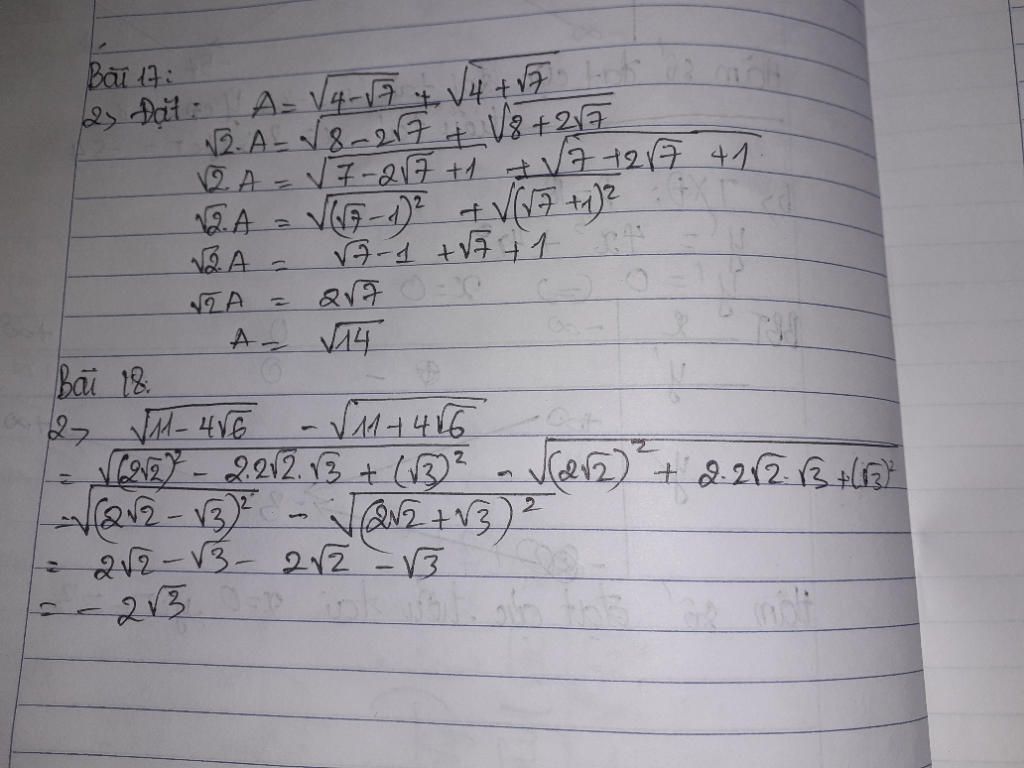 Bài 17:
2, Đặt: A = √(4-√7) + √(4+√7)
√2.A = √(8-2√7) + √(8+2√7)
√2.A = √(7-2√7+1) + √(7+2√7+1)
√2.A = √((√7-1)²) + √((√7+1)²)
√2.A = √7-1 +√7+1
√2A = 2√7
A = √14
Bài 18:
2, √(11-4√6) - √(11+4√6)
= √((2√2)² - 2.2√2.√3 + (√3)²) - √((2√2)² + 2.2√2.√3 + (√3)²)
= √((2√2-√3)²) - √((2√2+√3)²)
= 2√2-√3- 2√2 -√3
= - 2√3